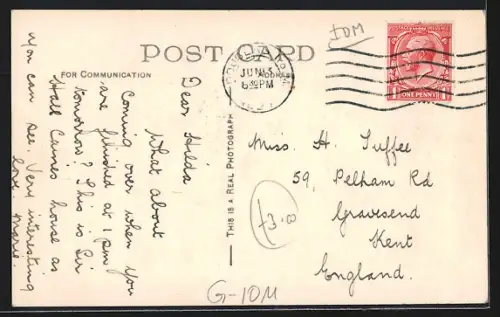 IOM
POST CARD
FOR COMMUNICATION
DOUGLAS
JUN 13
6 30 PM
POSTAGE REVENUE
ONE PENNY
Dear Hilda,
What about
Coming over when you
are finished at 1 pm
tomorrow? This is Sir
Hall Caines house as
you can see. Very interesting
love. Marie.
THIS IS A REAL PHOTOGRAPH
Miss. H. Tuffee
59, Pelham Rd
Gravesend
Kent
England.
G-10M